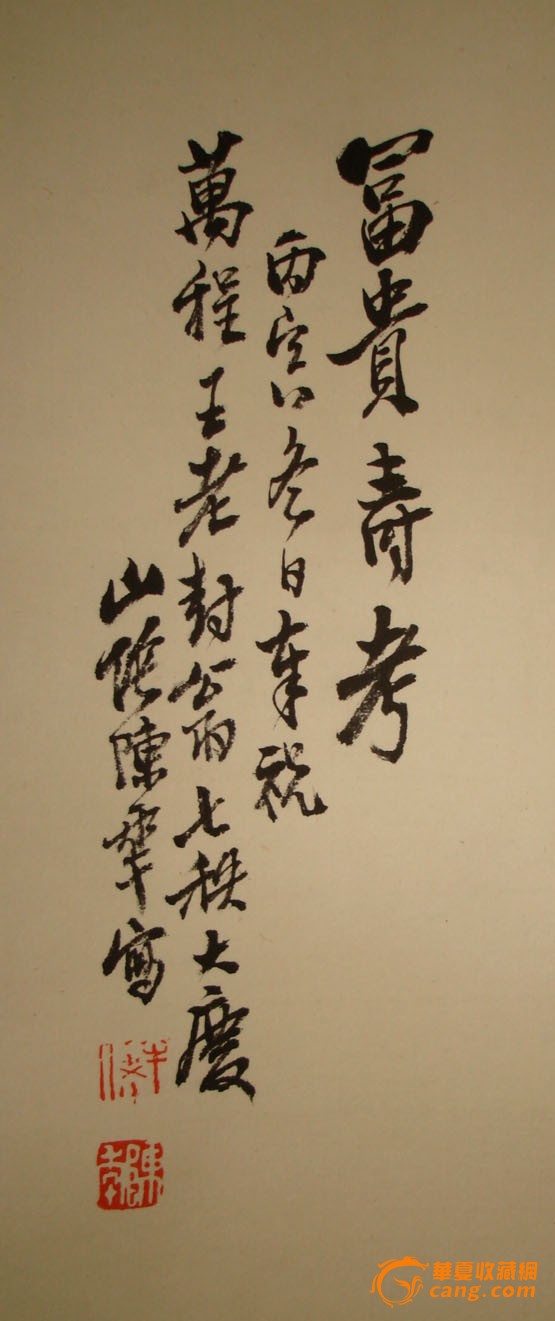 冨貴壽考
丙寅冬日奉祝
萬程王老封翁七秩大慶
山陰陳年寫
陳年
華夏收藏網
cang.com